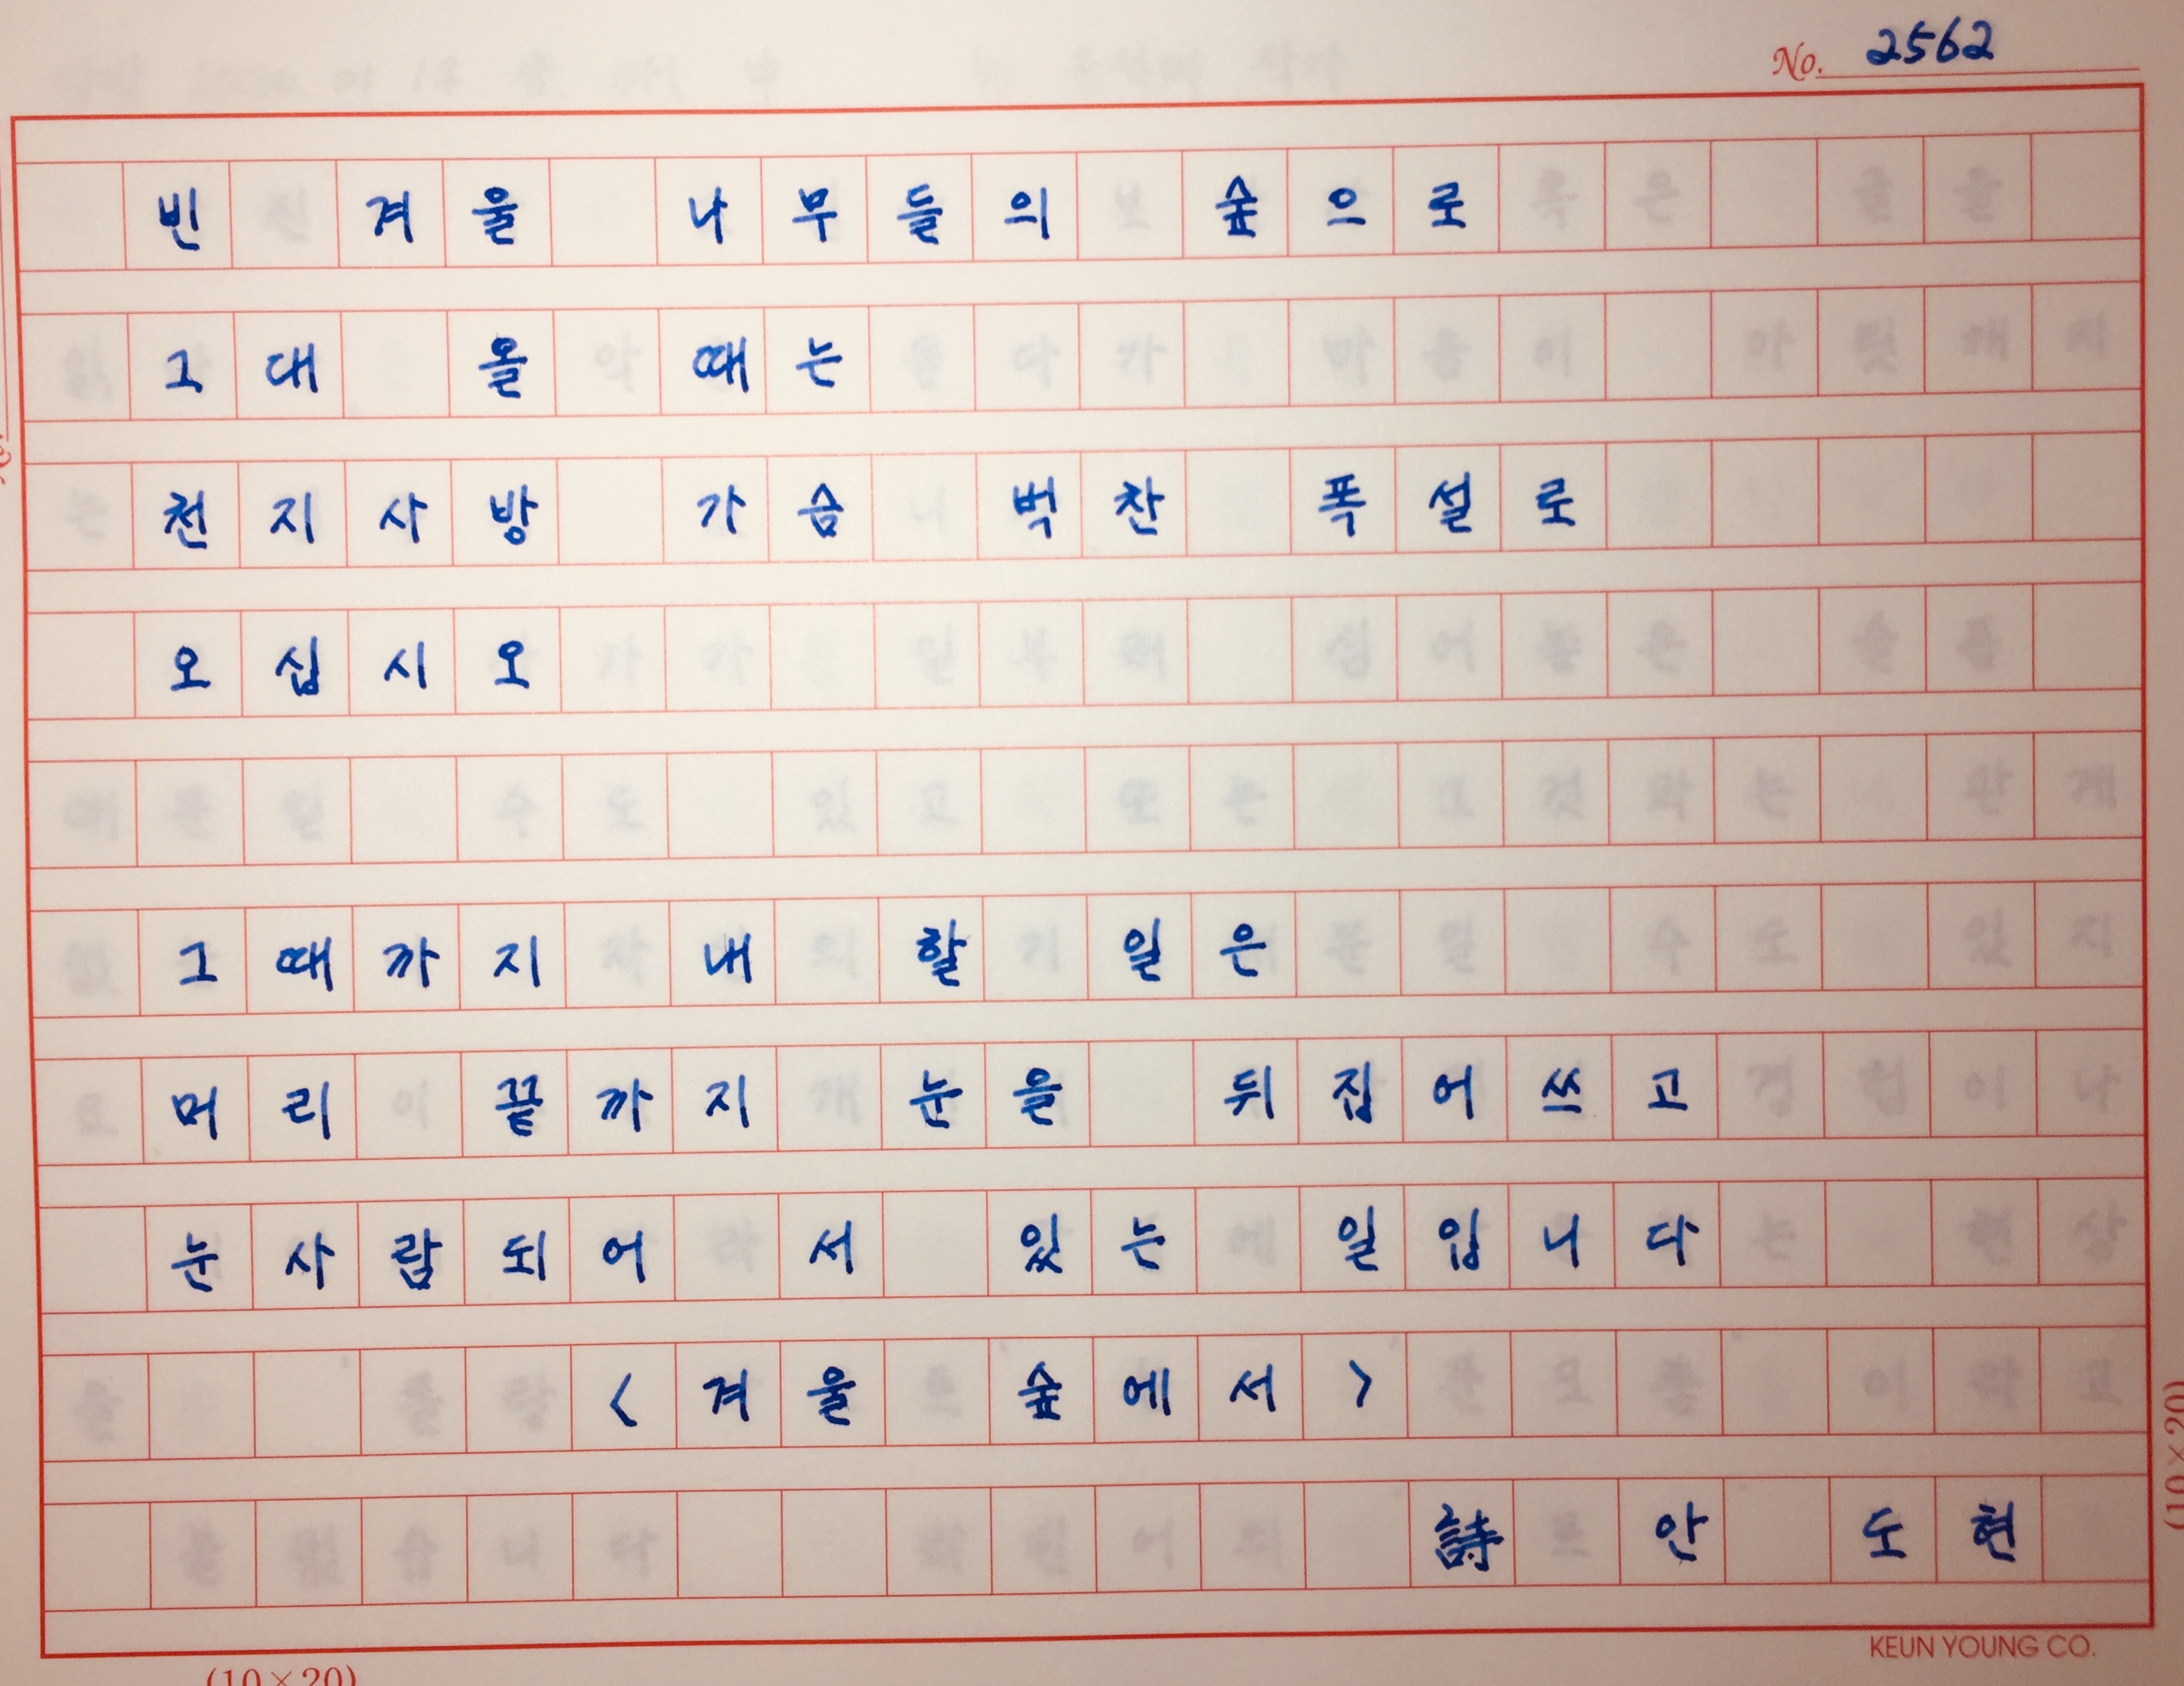 No. 2562
빈 겨울 나무들의 숲으로
그대 올 때는
천지사방 가슴 벅찬 폭설로
오십시오
그때까지 내 할 일은
머리 끝까지 눈을 뒤집어쓰고
눈사람되어 서 있는 일입니다
<겨울 숲에서>
詩 안 도현
KEUN YOUNG CO.
(10×20)
(10×20)